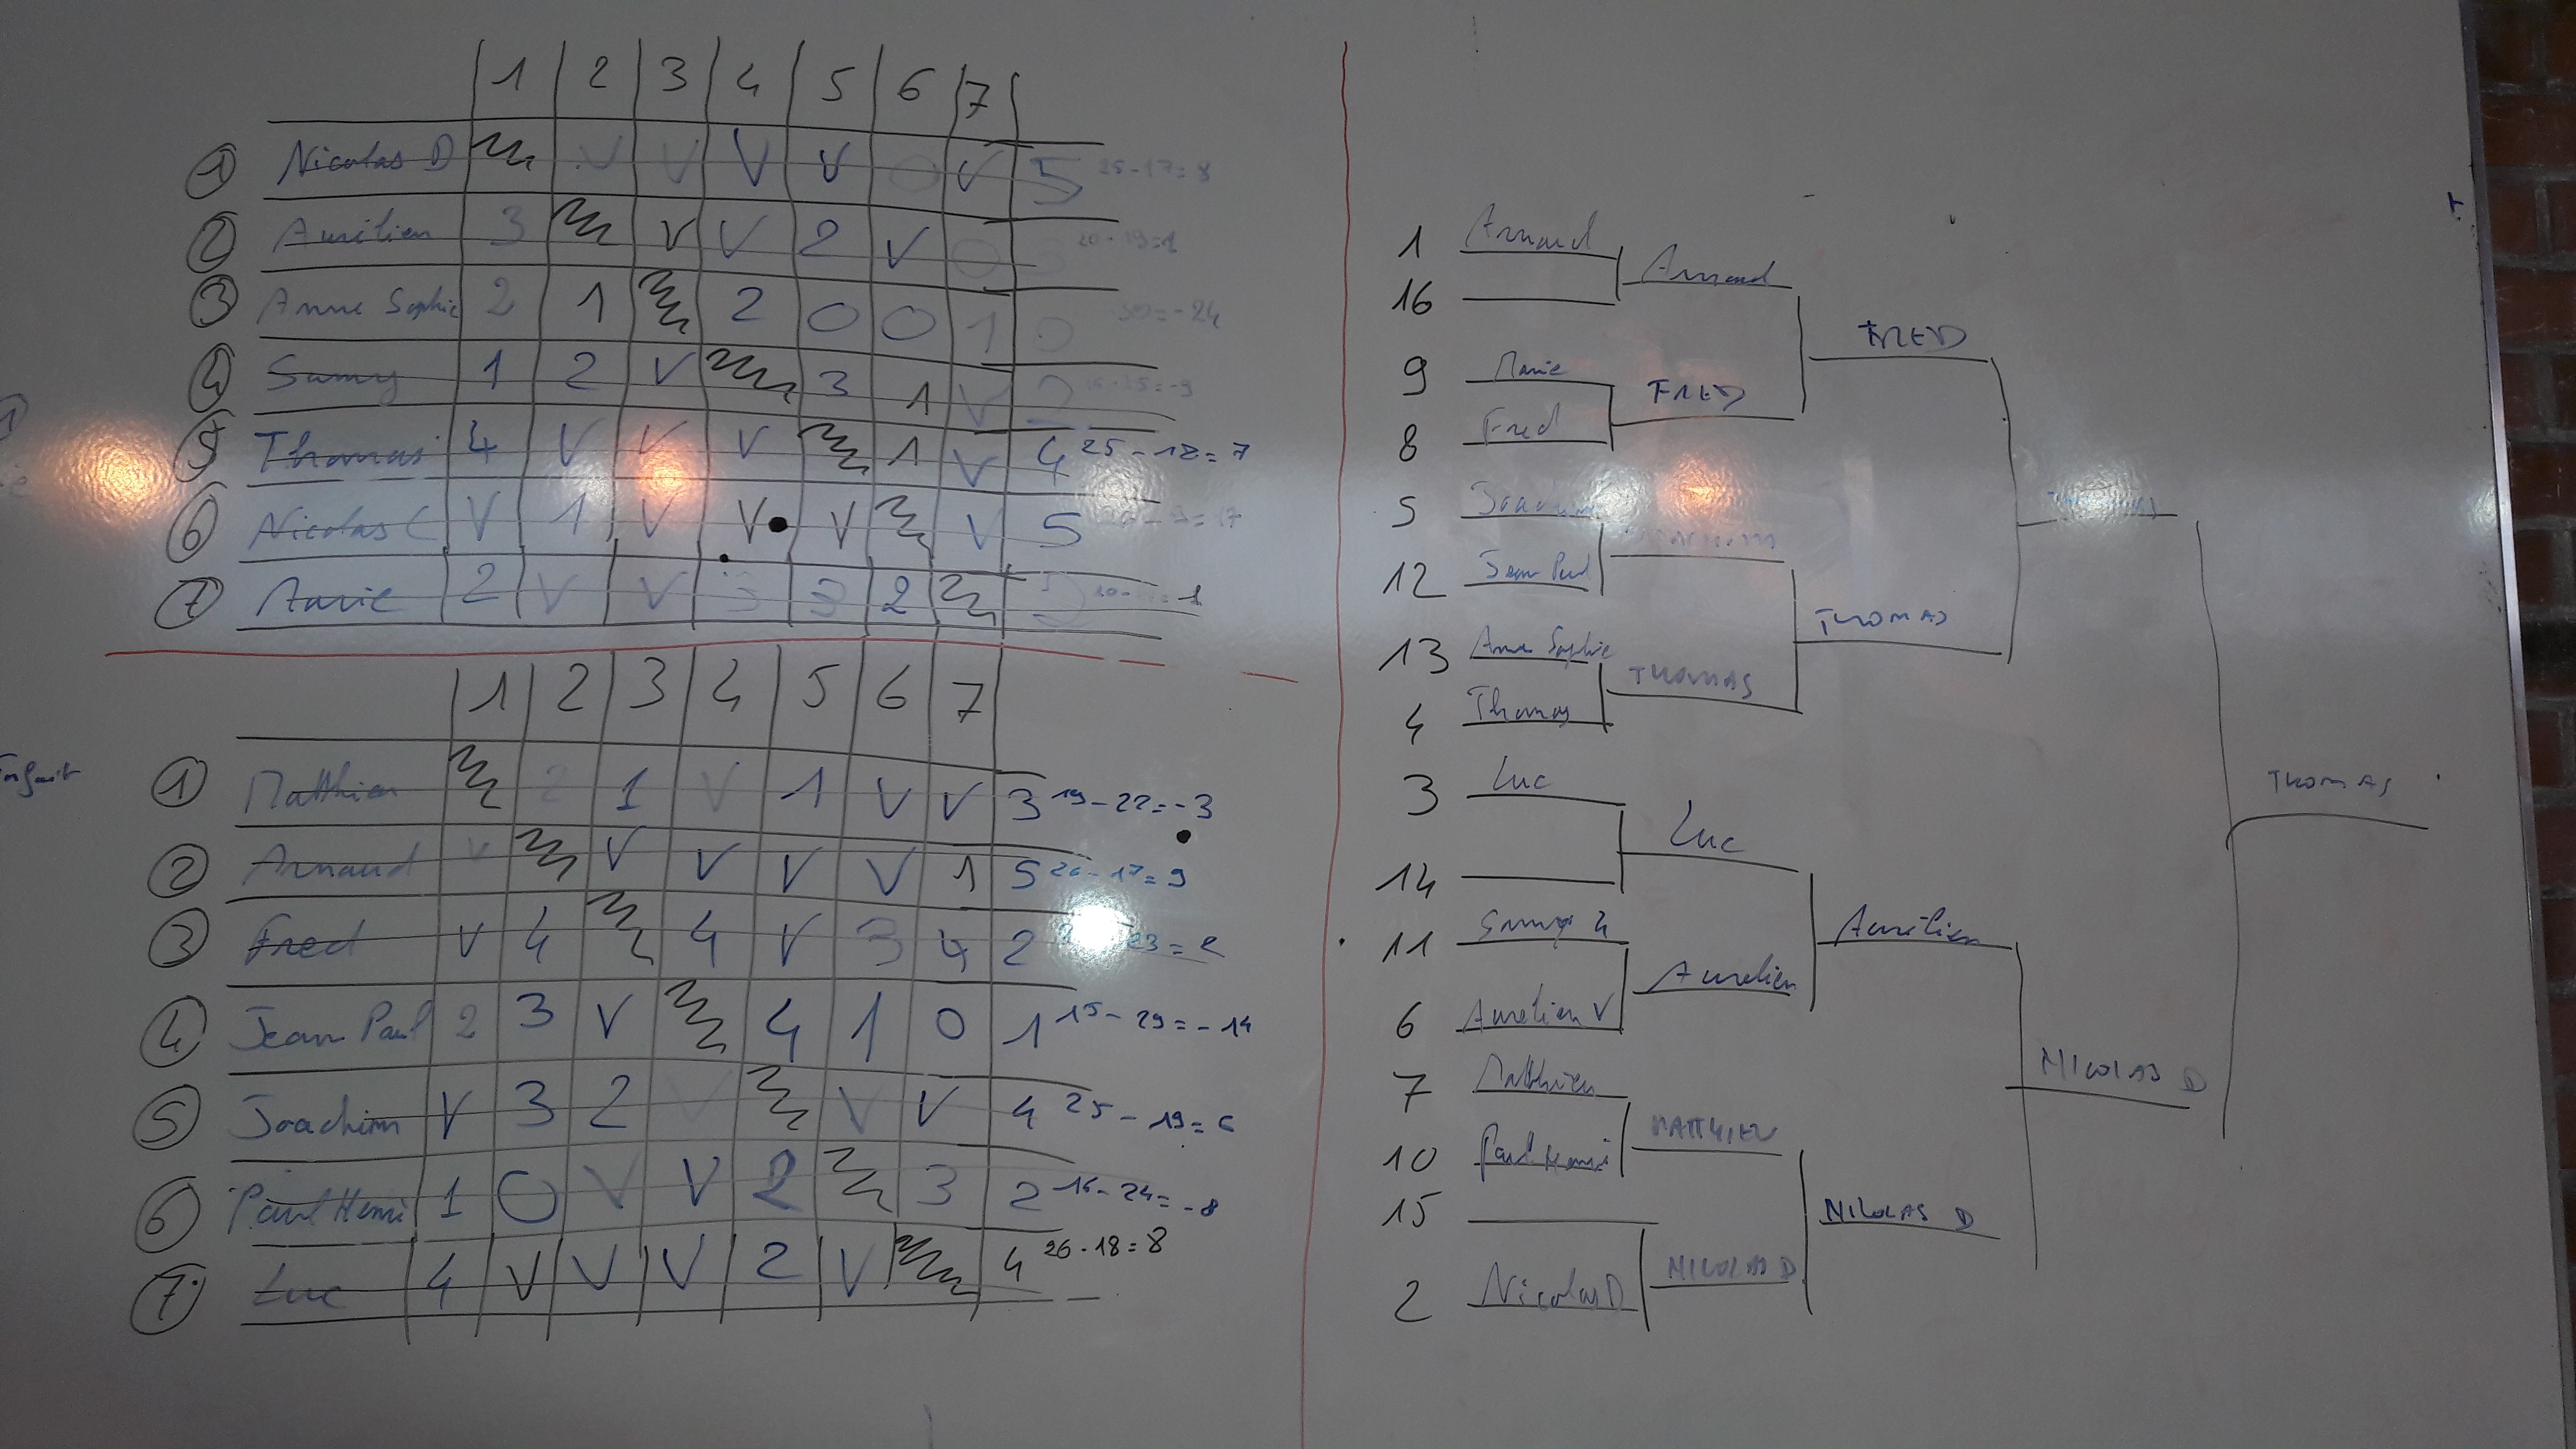 1 2 3 4 5 6 7
1 Nicolas D V V V V 0 V 5 25-17=8
2 Aurélien 3 V V 2 V 0 3 20-19=1
3 Anne Sophie 2 1 2 0 0 1 0 30=-24
4 Samy 1 2 V 3 1 V 2
5 Thomas 4 V V V 1 V 4 25-18=7
6 Nicolas C V 1 V V V V 5
7 2 V V 3 3 2
1 2 3 4 5 6 7
1 Matthieu 2 1 V 1 V V 3 19-22=-3
2 Arnaud V V V V V 1 5 26-17=9
3 Fred V 4 4 V 3 4 2 23=2
4 Jean Paul 2 3 V 4 1 0 1 15-29=-14
5 Joachim V 3 2 V V V 4 25-19=6
6 Paul Henri 1 0 V V 2 3 2 16-24=-8
7 Luc 4 V V V 2 V 4 26-18=8
1 Arnaud
Arnaud
16
FRED
9 Marie
FRED
8 Fred
5 Joachim
12 Jean Paul
THOMAS
13 Anne Sophie
THOMAS
4 Thomas
THOMAS
3 Luc
Luc
14
11 Samy
Aurélien
Aurelien
6 Aurélien V
NICOLAS D
7 Matthieu
MATTHIEU
10 Paul Henri
15
NICOLAS D
NICOLAS D
2 Nicolas D